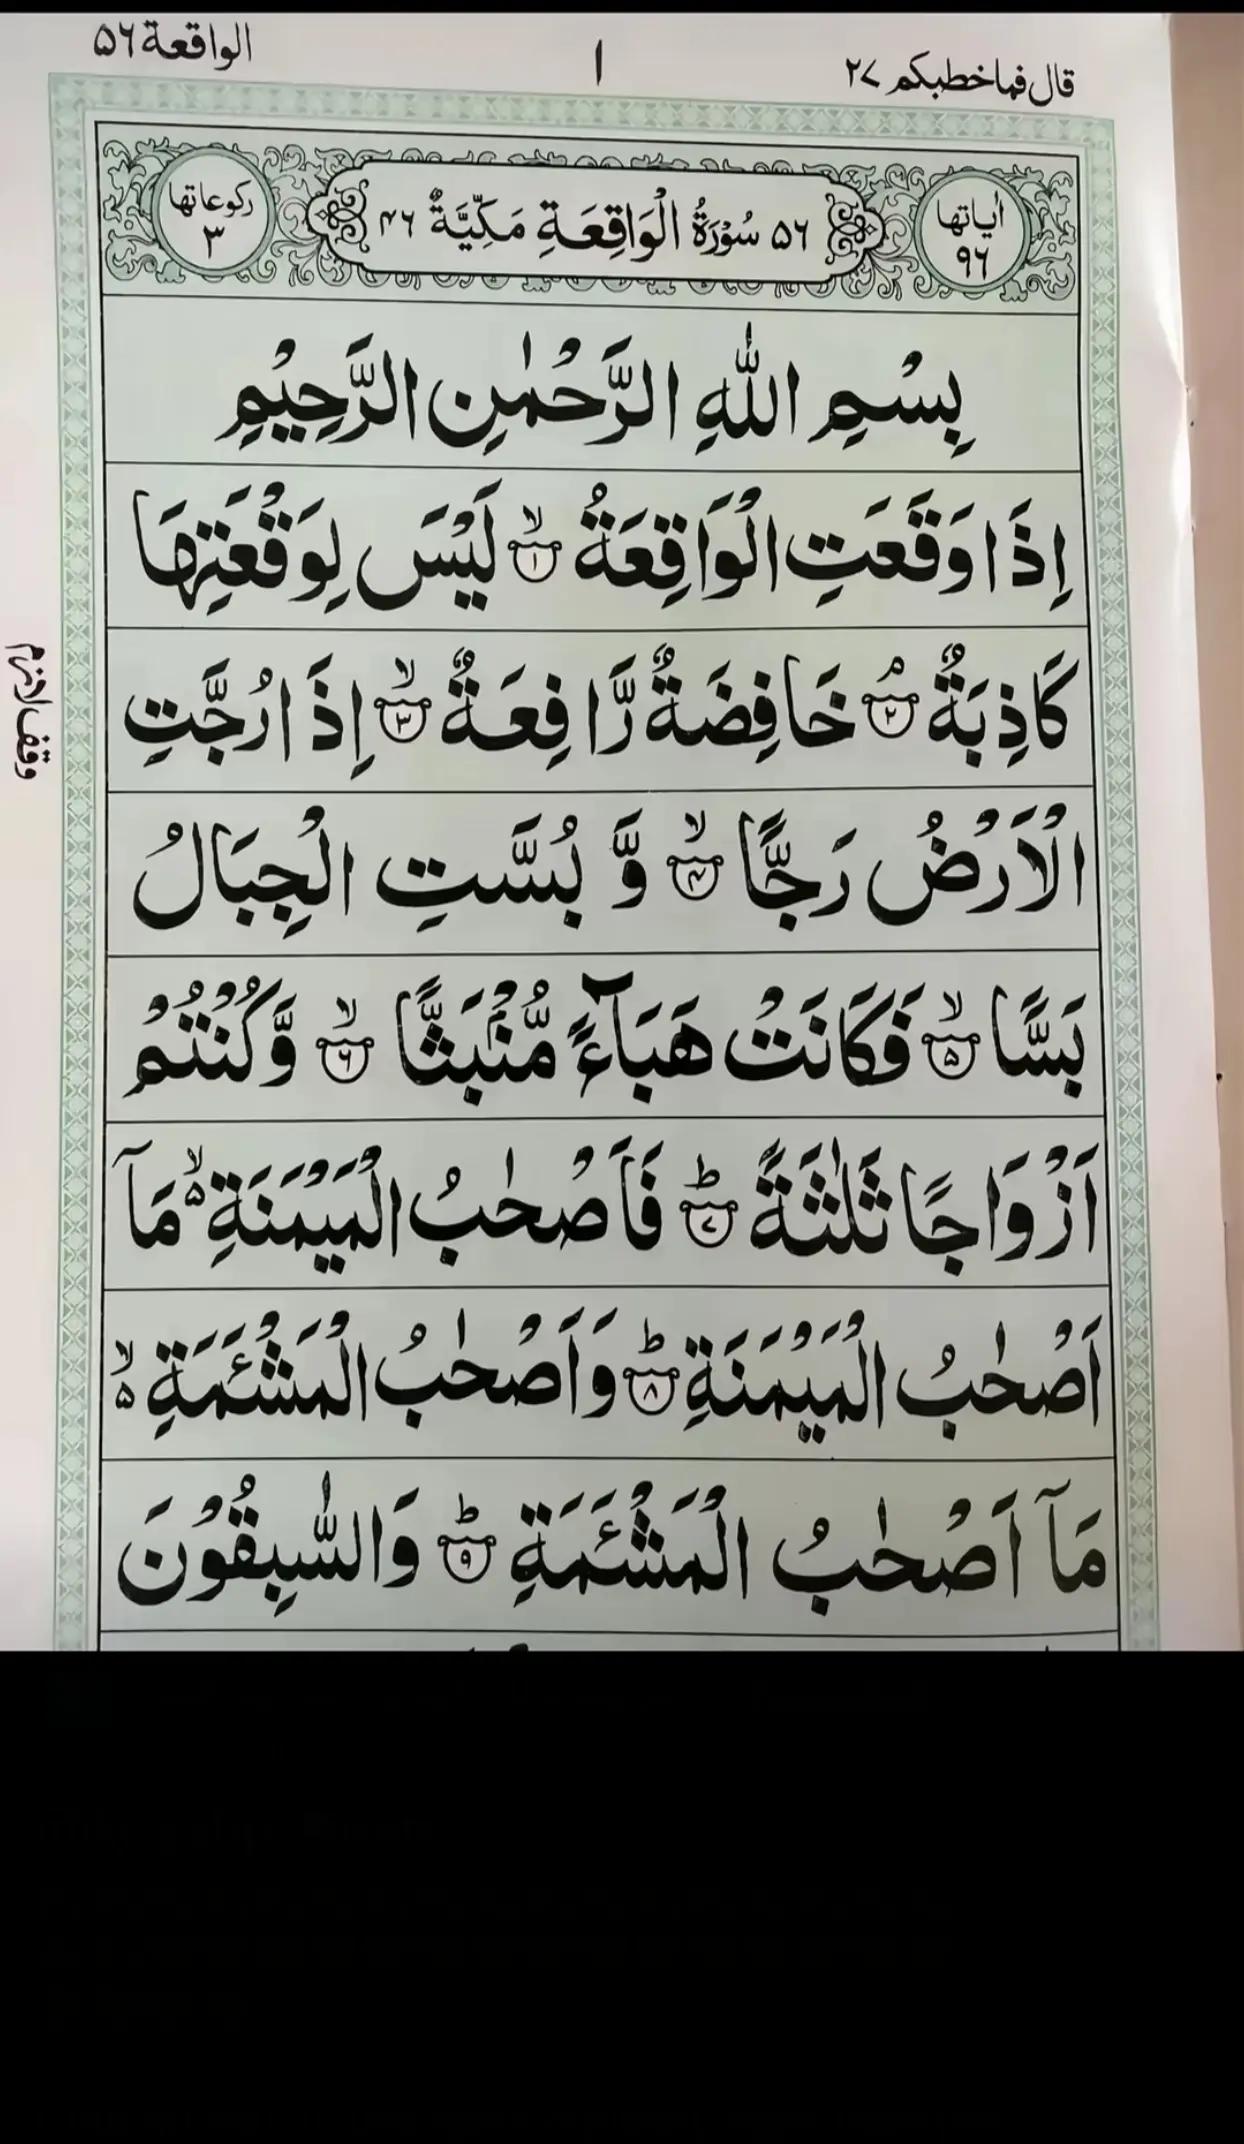 قال فماخطبكم ٢٧
١
الواقعة ٥٦
اٰیاتها ٩٦
٥٦ سُوْرَةُ الْوَاقِعَةِ مَكِّيَّةٌ ٤٦
ركوعاتها ٣
بِسْمِ اللّٰهِ الرَّحْمٰنِ الرَّحِيْمِ
اِذَا وَقَعَتِ الْوَاقِعَةُ ۙ‏﴿١﴾ لَيْسَ لِوَقْعَتِهَا
كَاذِبَةٌ ۘ‏﴿٢﴾ خَافِضَةٌ رَّافِعَةٌ ۙ‏﴿٣﴾ اِذَا رُجَّتِ
وقف لازم
الْاَرْضُ رَجًّا ۙ‏﴿٤﴾ وَّ بُسَّتِ الْجِبَالُ
بَسًّا ۙ‏﴿٥﴾ فَكَانَتْ هَبَآءً مُّنْۢبَثًّا ۙ‏﴿٦﴾ وَّكُنْتُمْ
اَزْوَاجًا ثَلٰثَةً ؕ‏﴿٧﴾ فَاَصْحٰبُ الْمَيْمَنَةِ ۙ۵ مَاۤ
اَصْحٰبُ الْمَيْمَنَةِ ؕ‏﴿٨﴾ وَاَصْحٰبُ الْمَشْئَمَةِ ۙ۵
مَاۤ اَصْحٰبُ الْمَشْئَمَةِ ؕ‏﴿٩﴾ وَالسّٰبِقُوْنَ